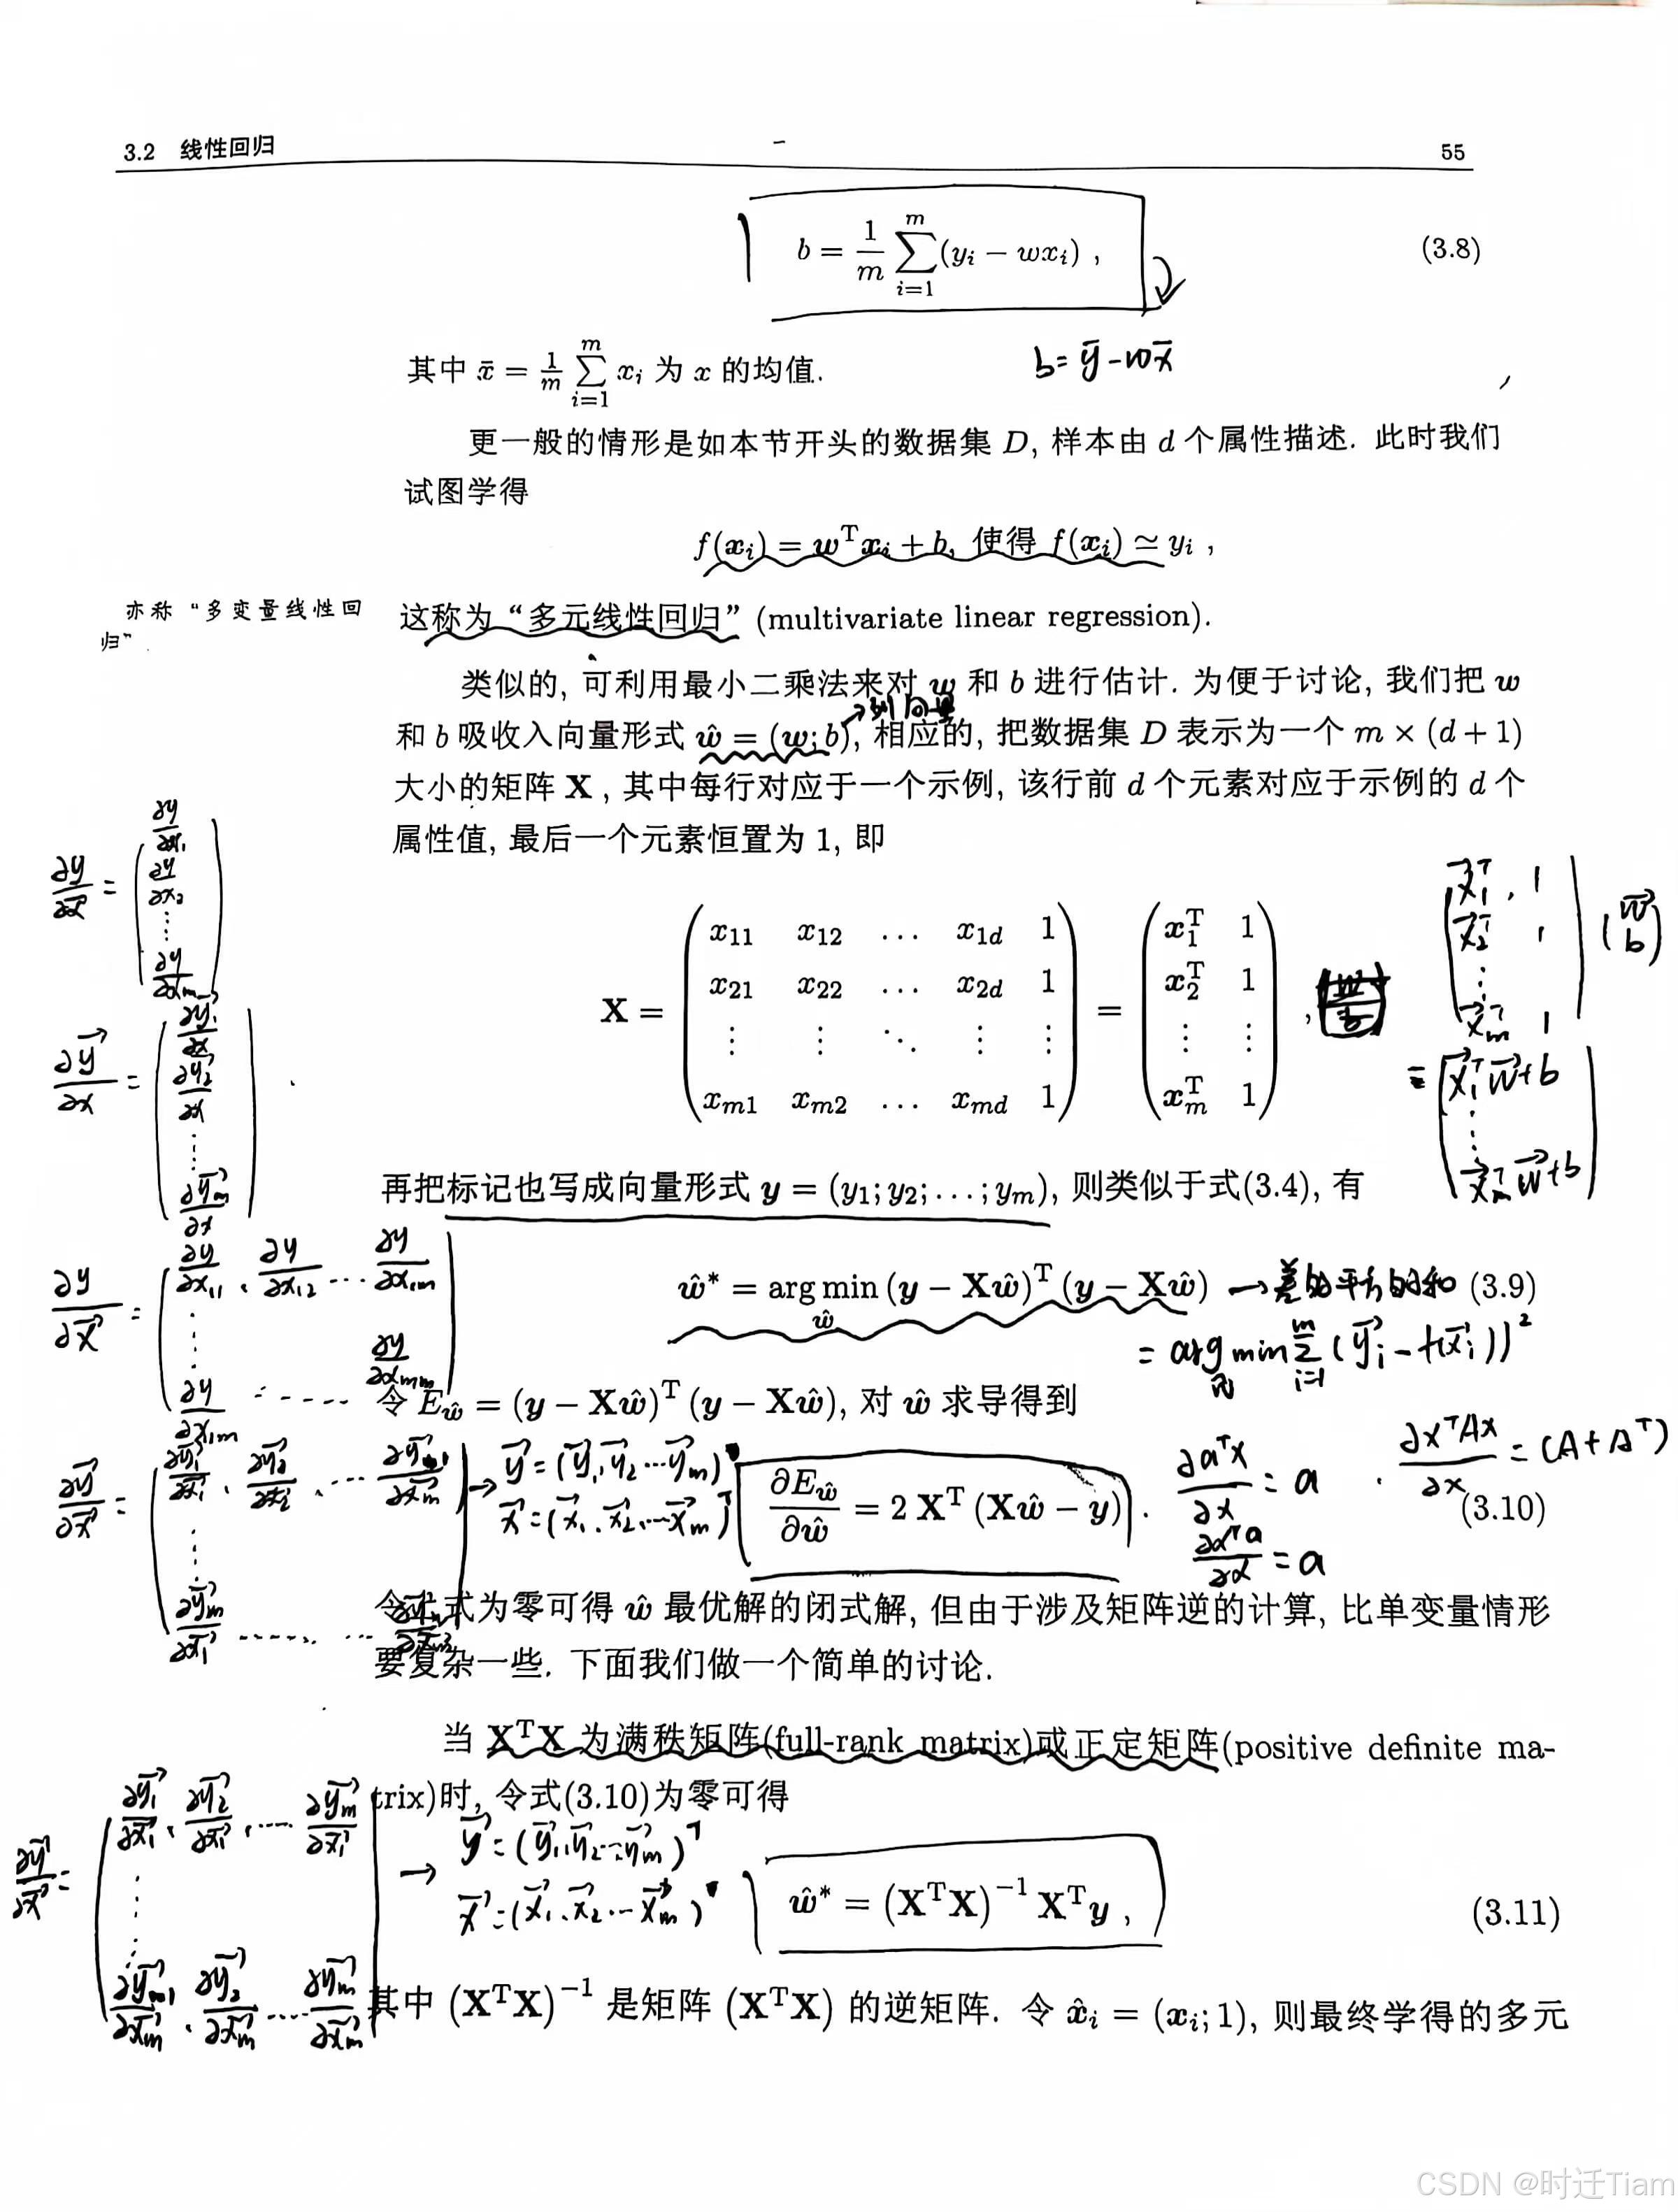 3.2 线性回归 55
b = \frac{1}{m} \sum_{i=1}^{m} (y_i − wx_i) , (3.8)
其中 x̄ = \frac{1}{m} \sum_{i=1}^{m} x_i 为 x 的均值.
b = ȳ − wx̄
更一般的情形是如本节开头的数据集 D, 样本由 d 个属性描述. 此时我们
试图学得
f(x_i) = w^T x_i + b, 使得 f(x_i) ≃ y_i ,
亦称“多变量线性回
归”.
这称为“多元线性回归” (multivariate linear regression).
类似的, 可利用最小二乘法来对 w 和 b 进行估计. 为便于讨论, 我们把 w
→列向量
和 b 吸收入向量形式 ŵ = (w; b), 相应的, 把数据集 D 表示为一个 m × (d + 1)
大小的矩阵 X , 其中每行对应于一个示例, 该行前 d 个元素对应于示例的 d 个
属性值, 最后一个元素恒置为 1, 即
X = \begin{pmatrix} x_{11} & x_{12} & … & x_{1d} & 1 \\ x_{21} & x_{22} & … & x_{2d} & 1 \\ ⋮ & ⋮ & ⋱ & ⋮ & ⋮ \\ x_{m1} & x_{m2} & … & x_{md} & 1 \end{pmatrix} = \begin{pmatrix} x_1^T & 1 \\ x_2^T & 1 \\ ⋮ & ⋮ \\ x_m^T & 1 \end{pmatrix} ,
\begin{pmatrix} \vec{x}_1^T , & 1 \\ \vec{x}_2^T & 1 \\ ⋮ \\ \vec{x}_m^T & 1 \end{pmatrix} \begin{pmatrix} \vec{w} \\ b \end{pmatrix}
= \begin{pmatrix} \vec{x}_1^T \vec{w} + b \\ ⋮ \\ \vec{x}_m^T \vec{w} + b \end{pmatrix}
\frac{∂y}{∂\vec{x}} = \begin{pmatrix} \frac{∂y}{∂x_1} \\ \frac{∂y}{∂x_2} \\ ⋮ \\ \frac{∂y}{∂x_m} \end{pmatrix}
\frac{∂\vec{y}}{∂x} = \begin{pmatrix} \frac{∂\vec{y}_1}{∂x} \\ \frac{∂\vec{y}_2}{∂x} \\ ⋮ \\ \frac{∂\vec{y}_m}{∂x} \end{pmatrix}
再把标记也写成向量形式 y = (y_1; y_2; …; y_m), 则类似于式(3.4), 有
\frac{∂y}{∂\vec{x}} = \begin{pmatrix} \frac{∂y}{∂x_{11}} , & \frac{∂y}{∂x_{12}} & … & \frac{∂y}{∂x_{1m}} \\ ⋮ \\ \frac{∂y}{∂x_{1m}} & … & & \frac{∂y}{∂x_{mm}} \end{pmatrix}
ŵ* = arg min_{ŵ} (y − Xŵ)^T (y − Xŵ) → 差的平方的和 (3.9)
= arg min \sum_{i=1}^{m} (\vec{y}_i − f(\vec{x}_i))^2
令 E_ŵ = (y − Xŵ)^T (y − Xŵ), 对 ŵ 求导得到
\frac{∂\vec{y}}{∂\vec{x}} = \begin{pmatrix} \frac{∂\vec{y}_1}{∂\vec{x}_1} , & \frac{∂\vec{y}_1}{∂\vec{x}_2} , & … & \frac{∂\vec{y}_1}{∂\vec{x}_m} \\ ⋮ \\ \frac{∂\vec{y}_m}{∂\vec{x}_1} & … & … & \end{pmatrix} →
\vec{y} = (\vec{y}_1, \vec{y}_2 … \vec{y}_m)
\vec{x} = (\vec{x}_1, \vec{x}_2, … \vec{x}_m)^T
\frac{∂E_ŵ}{∂ŵ} = 2 X^T (Xŵ − y) . (3.10)
\frac{∂a^T x}{∂x} = a , \frac{∂x^T A x}{∂x} = (A + A^T)
\frac{∂x^T a}{∂x} = a
令上式为零可得 ŵ 最优解的闭式解, 但由于涉及矩阵逆的计算, 比单变量情形
要复杂一些. 下面我们做一个简单的讨论.
当 X^T X 为满秩矩阵(full-rank matrix)或正定矩阵(positive definite ma-
trix)时, 令式(3.10)为零可得
\frac{∂\vec{y}}{∂\vec{x}} = \begin{pmatrix} \frac{∂\vec{y}_1}{∂\vec{x}_1} , & \frac{∂\vec{y}_2}{∂\vec{x}_1} , & … & \frac{∂\vec{y}_m}{∂\vec{x}_1} \\ ⋮ \\ \frac{∂\vec{y}_1}{∂\vec{x}_m} , & \frac{∂\vec{y}_2}{∂\vec{x}_m} & … & \frac{∂\vec{y}_m}{∂\vec{x}_m} \end{pmatrix} →
\vec{y} = (\vec{y}_1, \vec{y}_2 … \vec{y}_m)^T
\vec{x} = (\vec{x}_1, \vec{x}_2 … \vec{x}_m)
ŵ* = (X^T X)^{−1} X^T y , (3.11)
其中 (X^T X)^{−1} 是矩阵 (X^T X) 的逆矩阵. 令 x̂_i = (x_i; 1), 则最终学得的多元
CSDN @时迁Tiam